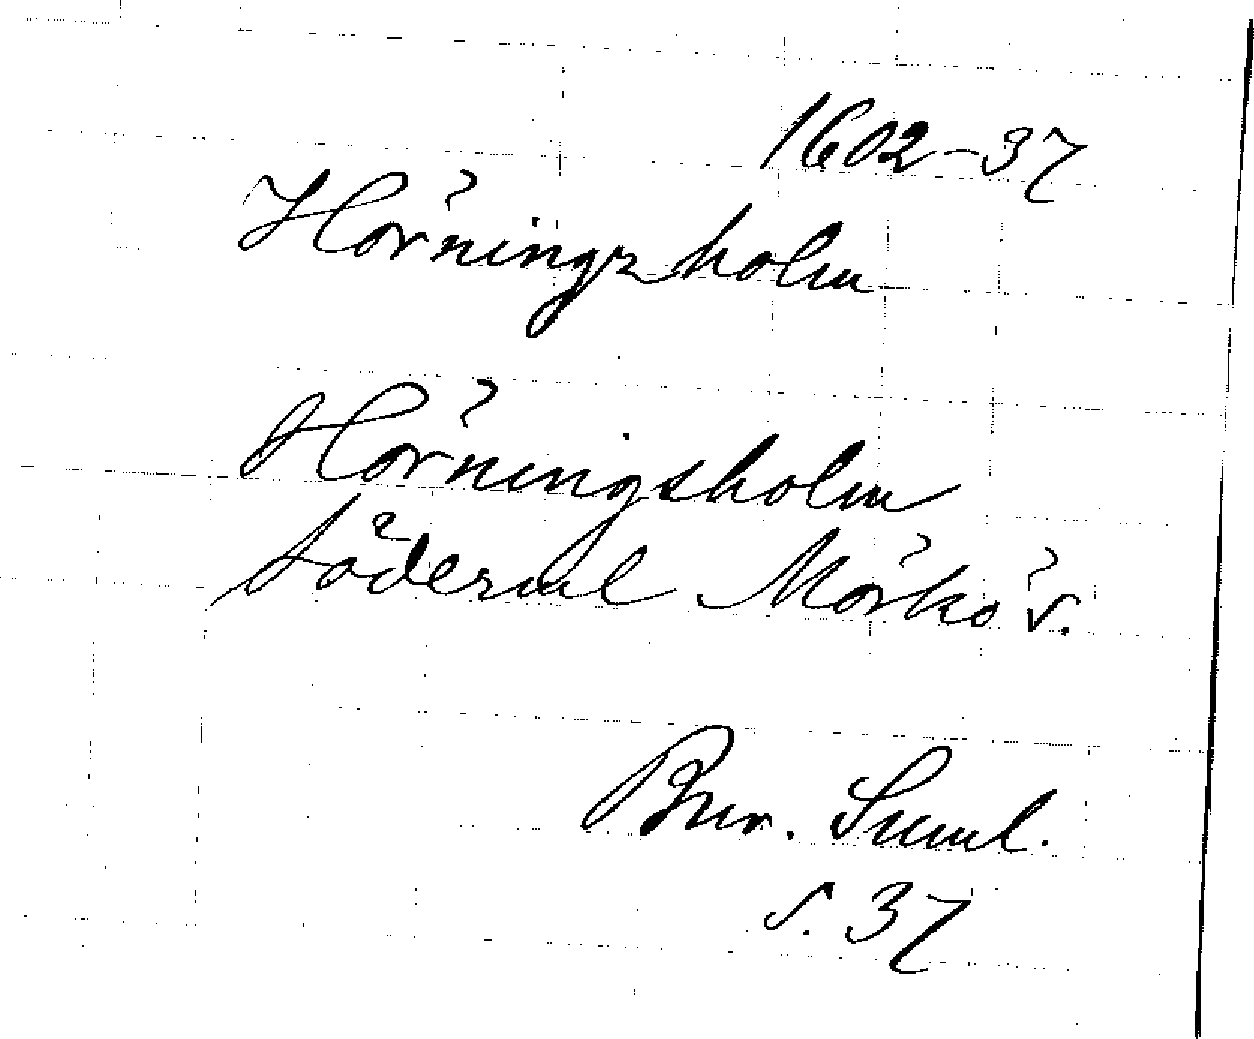 1602-37
Hörningzholm
Hörningsholm
Söderml Mörkö s.
Bur. Suml.
s. 37